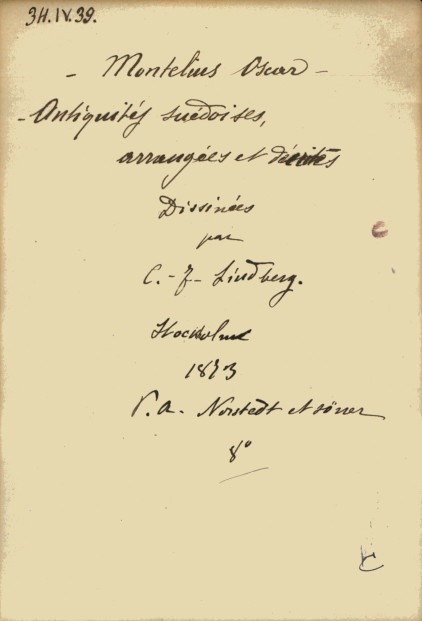 3H.IV.39.
- Montelius Oscar -
- Antiquités suédoises,
arrangées et décrites
Dissinées
par
C.-F- Lindberg.
Stockholm
1873
P.A. Norstedt et söner
8°